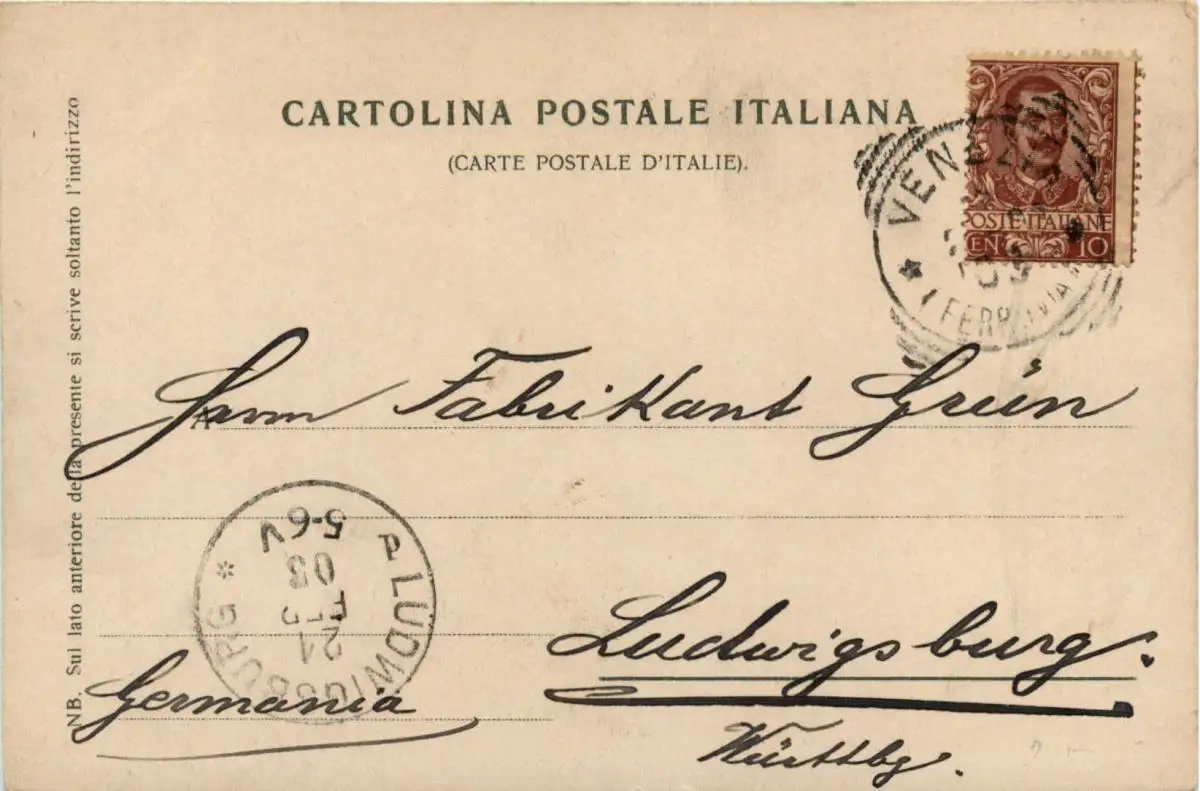 CARTOLINA POSTALE ITALIANA
(CARTE POSTALE D'ITALIE).
POSTE ITALIANE
CEN 10
VENE
FERROVIA
NB. Sul lato anteriore della presente si scrive soltanto l'indirizzo
A
Herrn Fabrikant Grün
LUDWIGSBURG
5-6V
03
21
Ludwigsburg.
Germania
Württbg.